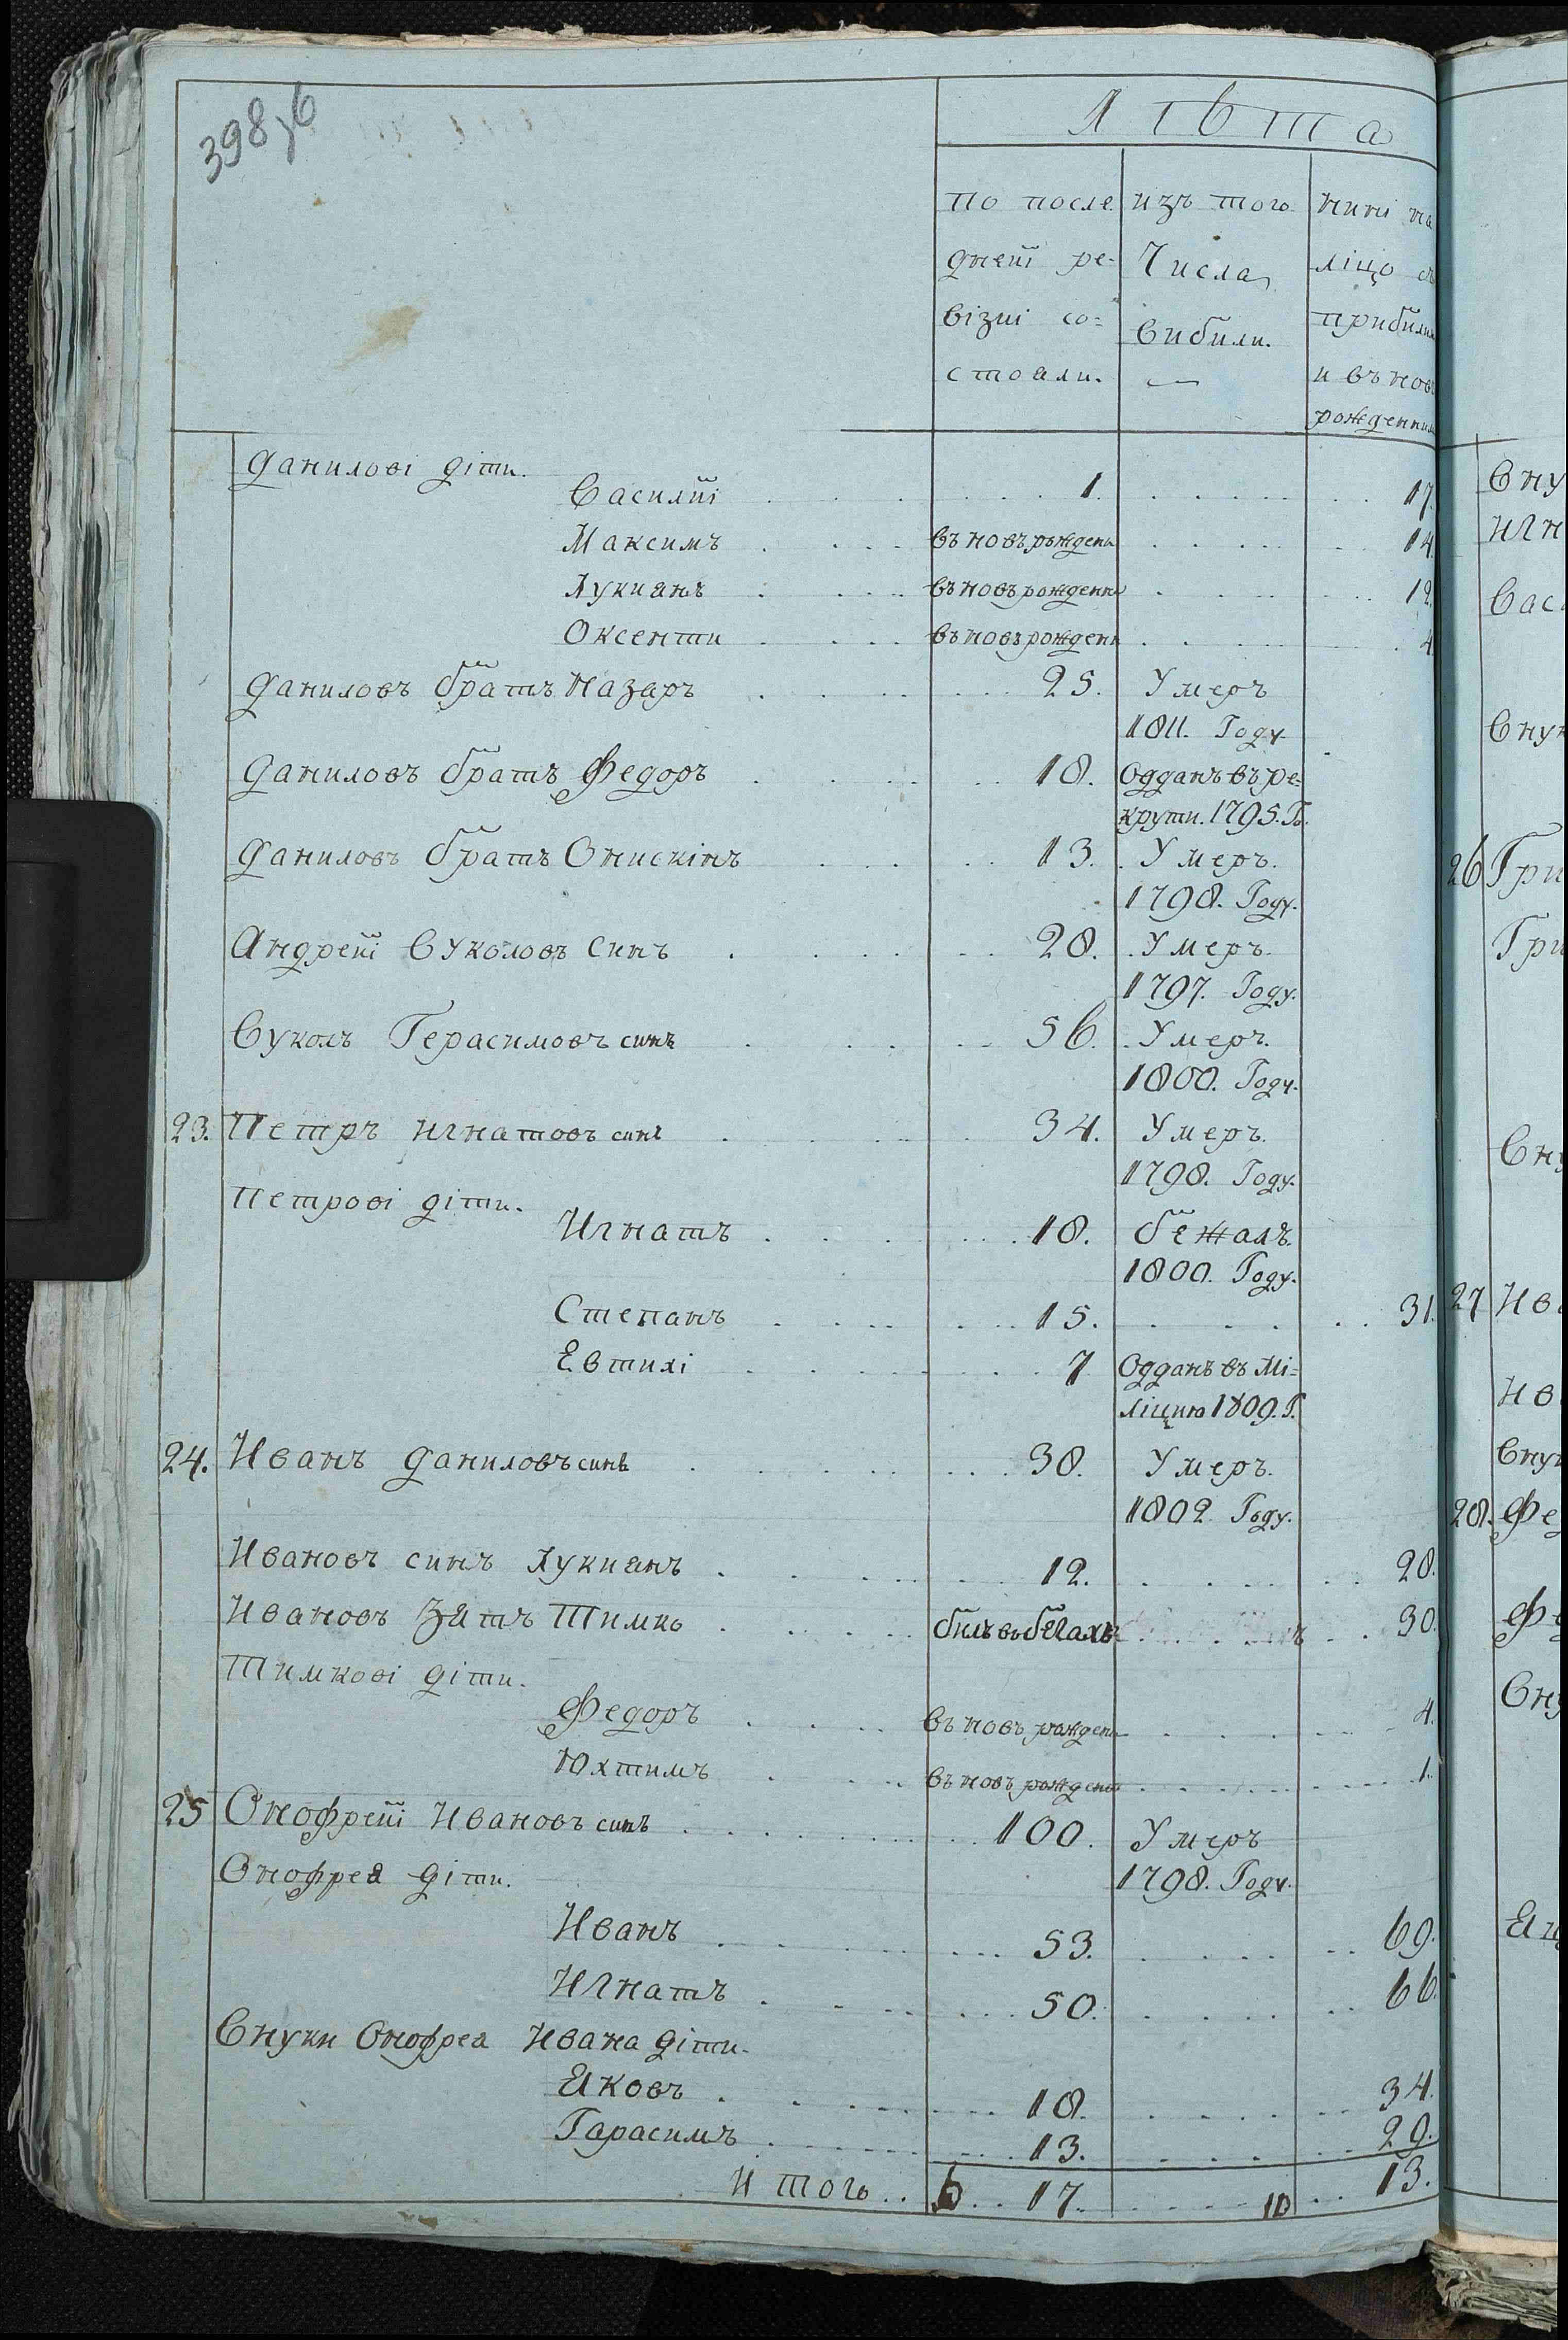 398,б
Лѣта
по после
днеѝ ре-
візиі со-
стоали.
изъ того
Числа
вибили.
—
нині на
ліцо
прибили
и въ нов
рожденним
Данилові діти.
Василиі . . . 1. . . . 17.
Максимъ . . . въ новъ рождени . . . 14.
Лукианъ . . . въ новъ рожденни . . . 12.
Оксенти . . . въ новъ рожденн . . . 4.
Даниловъ братъ Назаръ . . . 25. Умеръ
1811. Году
Даниловъ братъ Федоръ . . . 18. Одданъ въ ре-
крути. 1795. Го.
Даниловъ братъ Онискінъ . . . 13. Умеръ.
1798. Году.
Андреиі Вуколовъ Синъ . . . 28. Умеръ.
1797. Году.
Вуколъ Герасимовъ синъ . . . 56. Умеръ.
1800. Году.
23. Петръ Игнатовъ синъ . . . 34. Умеръ.
1798. Году.
Петрові діти.
Игнатъ . . . 18. бежалъ.
1800. Году.
Степанъ . . . 15. . . . 31.
Евтихі . . . 7 Одданъ въ Мі-
ліцию 1809. Г.
24. Иванъ Даниловъ синъ . . . 38. Умеръ.
1802. Году.
Ивановъ синъ Лукианъ . . . 12. . . . 28.
Ивановъ Зятъ Тимко . . . билъ въ бегахъ . . . 30.
Тимкові діти.
Федоръ . . . въ новъ рождени . . . 4.
Юхтимъ . . . въ новъ рождени . . . 1.
25 Онофреиі Ивановъ синъ . . . 100. Умеръ
1798. Году.
Онофрея діти.
Иванъ . . . 53. . . . 69.
Игнатъ . . . 50. . . . 66.
Внуки Онофрея Ивана діти.
Яковъ . . . 18. . . . 34.
Гарасимъ . . . 13. . . . 29.
Итого . . 17. . . . 10 . . 13.
Вну
Игн
Вас
Внук
26 Гри
Гри
Вну
27 Ива
Ив
Внук
28. Фед
Фе
Вну